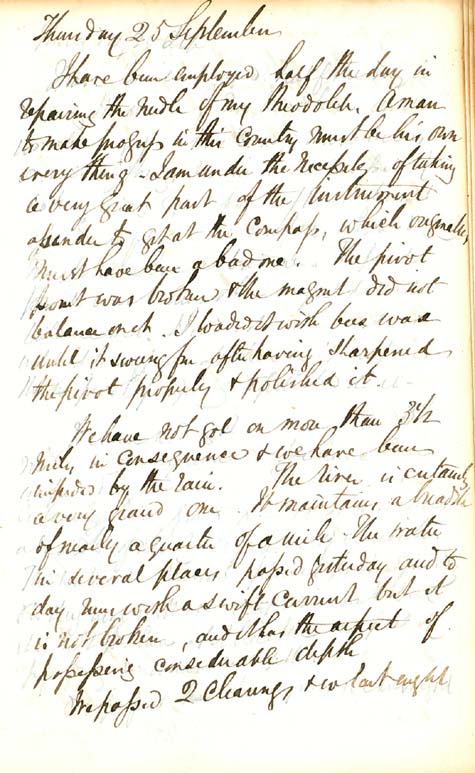 Thursday 25 September
I have been employed half the day in
repairing the needle of my Theodolite. A man
to make progress in this Country must be his own
every thing - I am under the necessity of taking
a very great part of the Instrument
asunder to get at the Compass, which originally
must have been a bad one. The pivot
point was broken & the magnet did not
balance on it. I loaded it with bees wax
until it swung free after having sharpened
the pivot properly & polished it.
We have not got on more than 3 1/2
Miles in consequence & we have been
impeded by the rain. The River is certainly
a very grand one. It maintains a breadth
of nearly a quarter of a mile. The water
in several places passed yesterday and to
day runs with a swift current but it
is not broken, and it has the aspect of
possessing considerable depth
We passed 2 Clearings & in last night